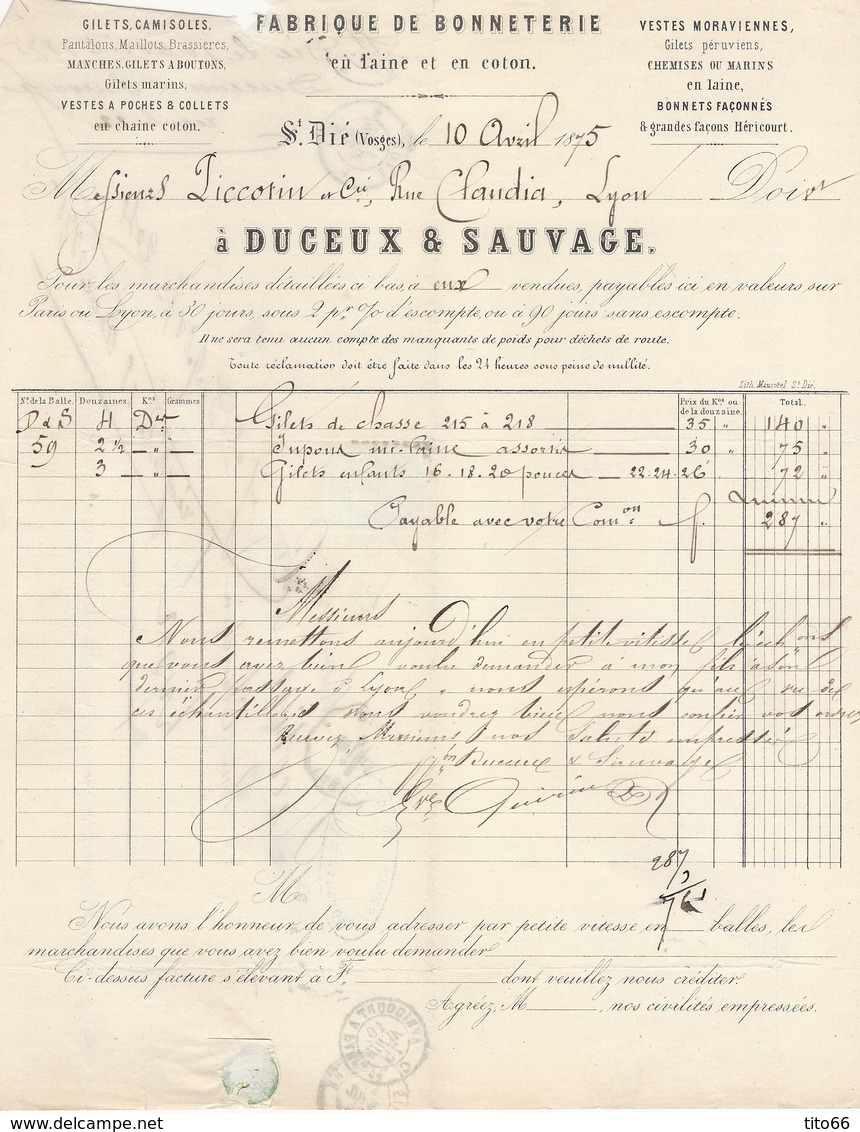 GILETS, CAMISOLES,
Pantalons, Maillots, Brassières,
MANCHES, GILETS A BOUTONS,
Gilets marins,
VESTES A POCHES & COLLETS
en chaine coton.
FABRIQUE DE BONNETERIE
en laine et en coton.
VESTES MORAVIENNES,
Gilets péruviens,
CHEMISES OU MARINS
en laine,
BONNETS FAÇONNÉS
& grandes façons Héricourt.
St. Dié (Vosges), le 10 Avril 1875
Messieurs Piccotin et Cie, Rue Claudia, Lyon Doivt
à DUCEUX & SAUVAGE.
Pour les marchandises détaillées ci bas, à eux vendues, payables ici en valeurs sur
Paris ou Lyon, à 30 jours, sous 2 pr % d'escompte, ou à 90 jours sans escompte.
Il ne sera tenu aucun compte des manquants de poids pour déchets de route.
Toute réclamation doit être faite dans les 24 heures sous peine de nullité.
Lith. Maucotel St Dié.
No de la Balle. Douzaines. Kos Grammes Prix du Kos ou de la douzaine. Total.
D & S 4 Dnes Gilets de chasse 215 à 218 35 " 140 "
59 2 1/2 " " Jupons mi-laine assortis 30 " 75 "
3 " Gilets enfants 16 - 18 - 20 pouces 22-24-26 72 "
Payable avec votre Comon f. 287 "
Messieurs
Nous remettons aujourd'hui en petite vitesse les échons
que vous avez bien voulu demander à mon fils à son
dernier passage à Lyon, nous espérons qu'au vu de
ces échantillons vous voudrez bien nous confier vos ordres
Recevez Messieurs nos saluts empressés
pon Duceux & Sauvage
287
M
Nous avons l'honneur de vous adresser par petite vitesse en balles, les
marchandises que vous avez bien voulu demander
Ci-dessus facture s'élevant à F. dont veuillez nous créditer.
Agréez, M , nos civilités empressées.
tito66